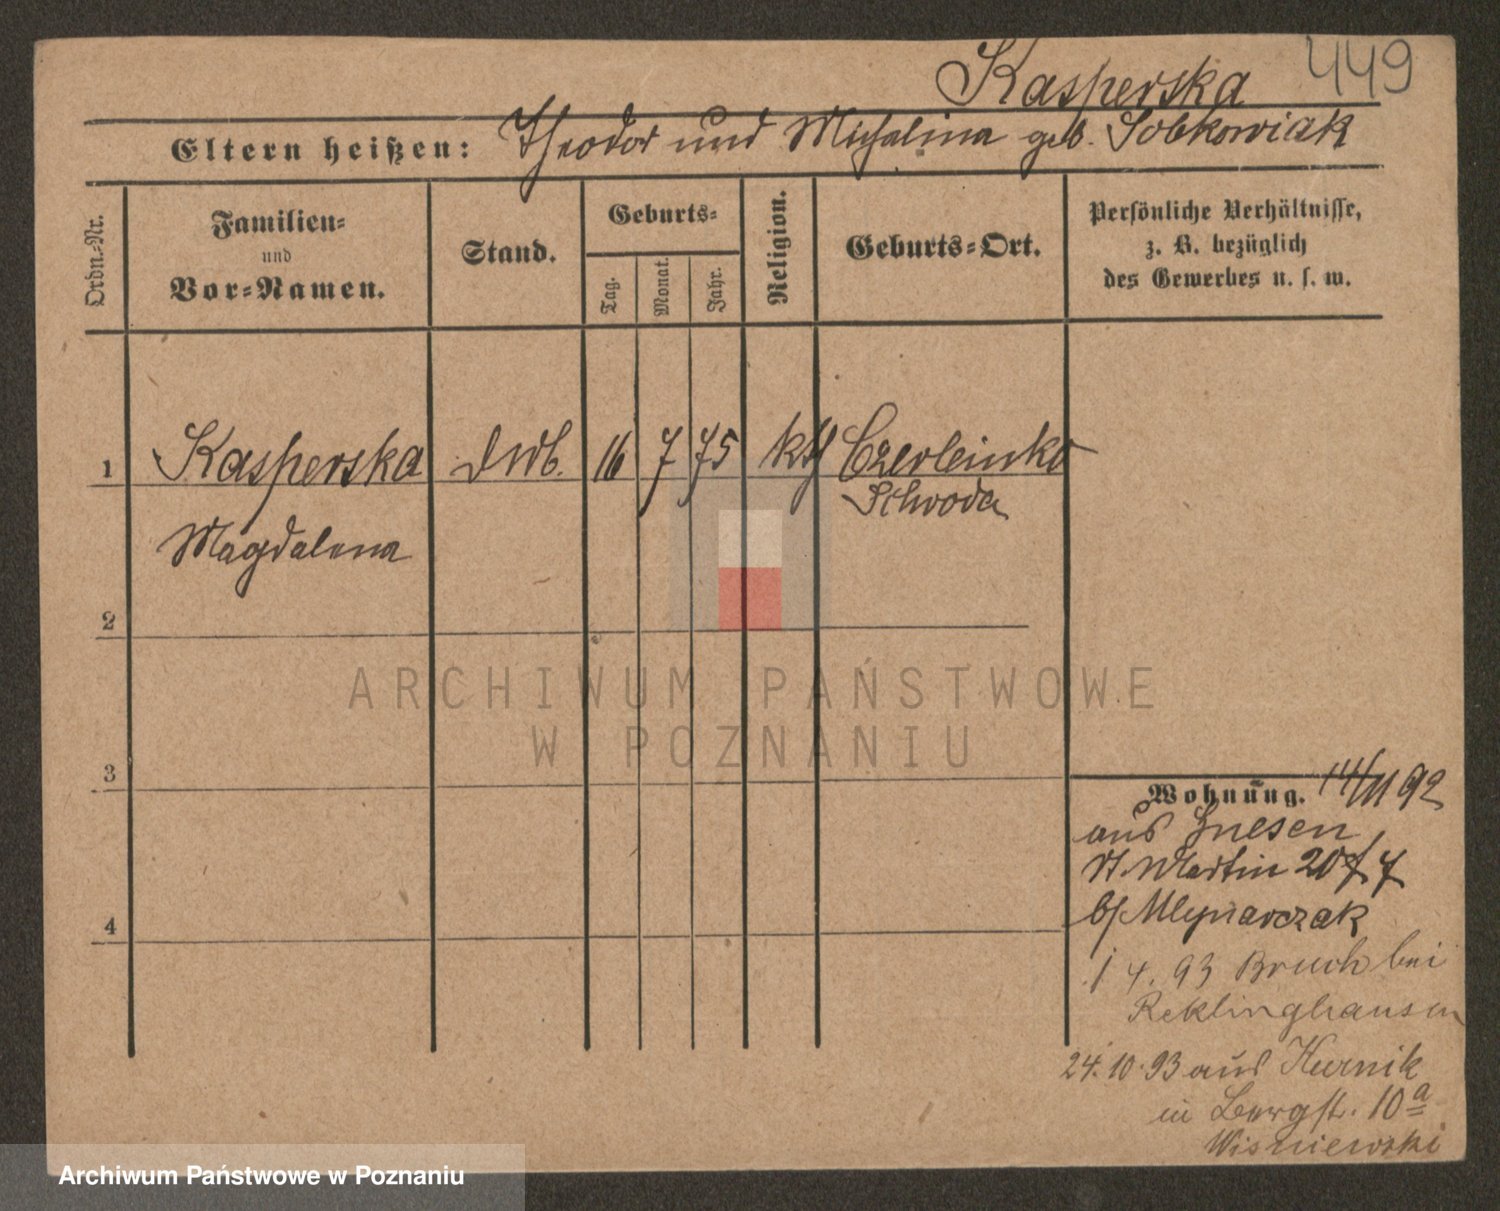 Kasperska 449
Eltern heißen: Theodor und Michalina geb. Sobkowiak
Ordn.-Nr.
Familien-
und
Vor-Namen.
Stand.
Geburts-
Tag.
Monat.
Jahr.
Religion.
Geburts-Ort.
Persönliche Verhältnisse,
z. B. bezüglich
des Gewerbes u. s. w.
1 Kasperska 16 7 75 kth Czerleinko
Schroda
Magdalena
2
3
4
Wohnung. 14/11 92
aus Gnesen
St. Martin 20
b/ Mlynarczak
1 4. 93 Bruch bei
Reklinghausen
24. 10. 93 aus Kurnik
in Bergstr. 10a
Wisniewski
ARCHIWUM PAŃSTWOWE
W POZNANIU
Archiwum Państwowe w Poznaniu